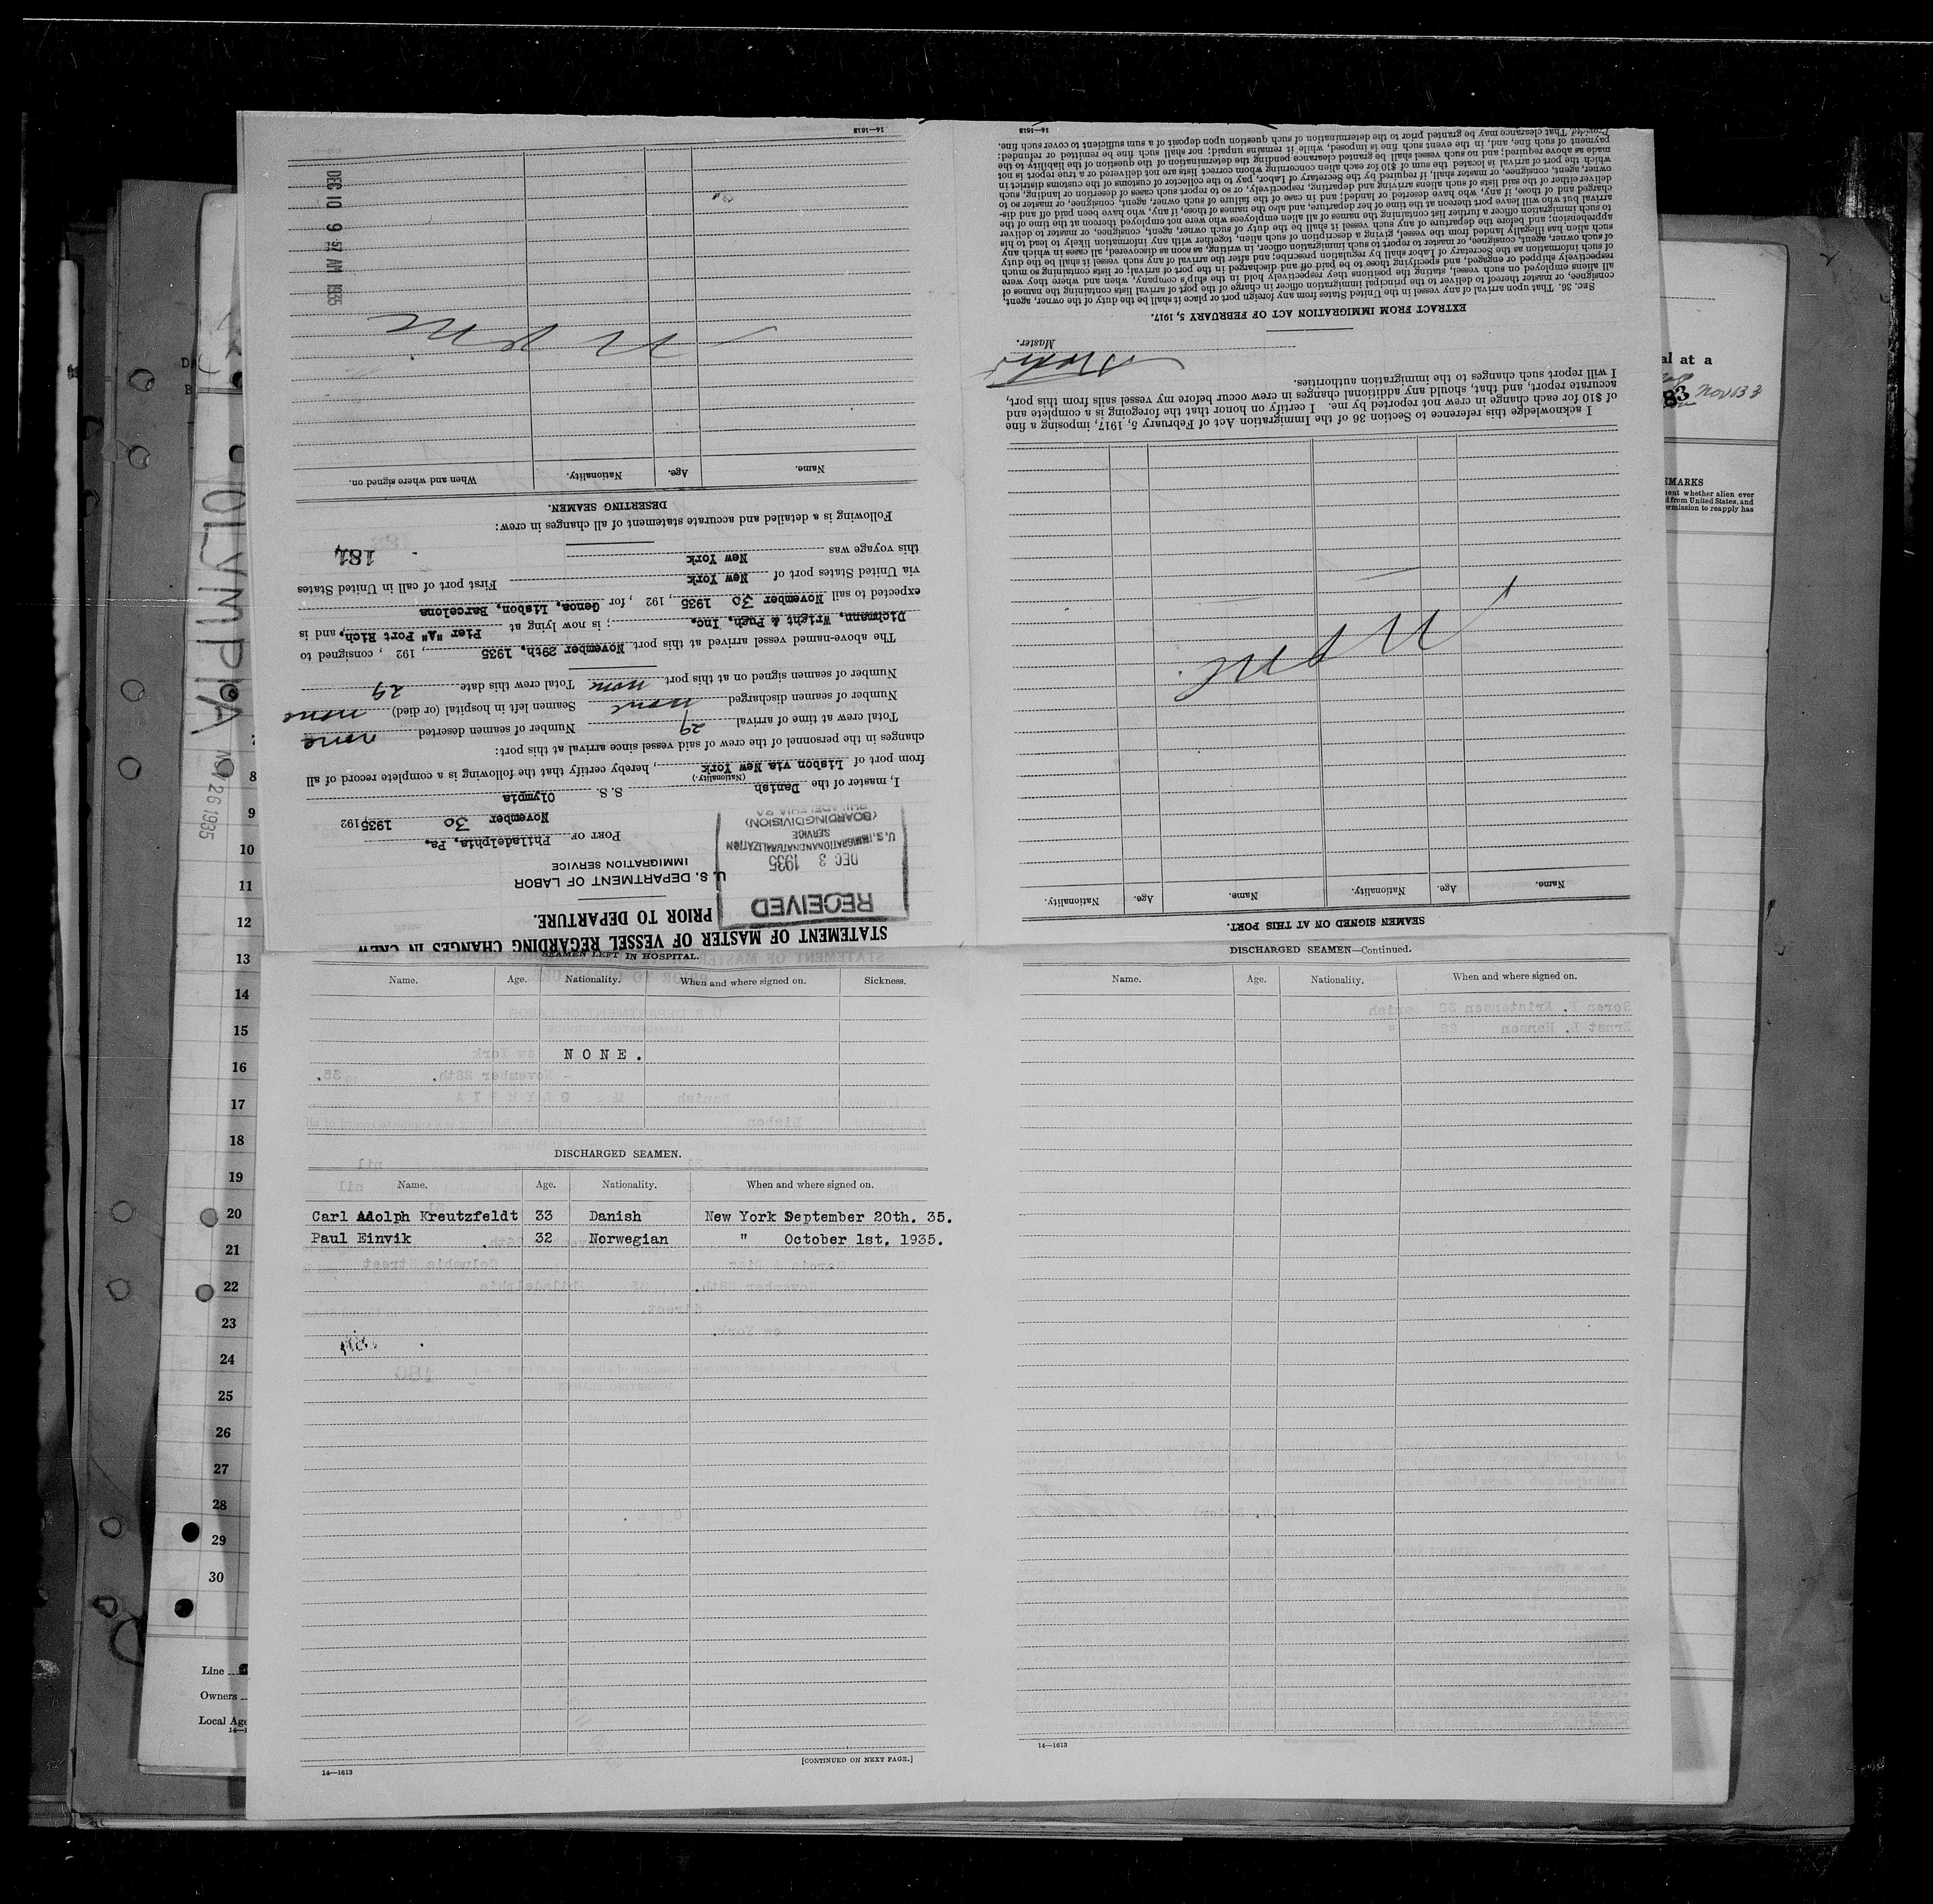 STATEMENT OF MASTER OF VESSEL REGARDING CHANGES IN CREW
PRIOR TO DEPARTURE.
U. S. DEPARTMENT OF LABOR
IMMIGRATION SERVICE
RECEIVED
DEC 3 1935
U. S. IMMIGRATION AND NATURALIZATION
SERVICE
(BOARDING DIVISION)
PHILADELPHIA PA
PORT OF Philadelphia, Pa.
November 30 1935, 192
I, master of the Danish S. S. Olympia
(Nationality.)
from port of Lisbon via New York, hereby certify that the following is a complete record of all
changes in the personnel of the crew of said vessel since arrival at this port:
Total crew at time of arrival 29 Number of seamen deserted none
Number of seamen discharged none Seamen left in hospital (or died) none
Number of seamen signed on at this port none Total crew this date 29
The above-named vessel arrived at this port November 29th, 1935, 192 , consigned to
Dichmann, Wright & Pugh, Inc. ; is now lying at Pier "A" Port Rich, and is
expected to sail November 30 1935, 192 , for Genoa, Lisbon, Barcelona
via United States port of New York First port of call in United States
this voyage was New York
181
Following is a detailed and accurate statement of all changes in crew:
DESERTING SEAMEN.
Name. Age. Nationality. When and where signed on.
None
DEC 10 9 57 AM 1935
14—1613
SEAMEN SIGNED ON AT THIS PORT.
Name. Age. Nationality. Name. Age. Nationality.
None
I acknowledge this reference to Section 36 of the Immigration Act of February 5, 1917, imposing a fine
of $10 for each change in crew not reported by me. I certify on honor that the foregoing is a complete and
accurate report, and that, should any additional changes in crew occur before my vessel sails from this port,
I will report such changes to the immigration authorities.
Master.
EXTRACT FROM IMMIGRATION ACT OF FEBRUARY 5, 1917.
SEC. 36. That upon arrival of any vessel in the United States from any foreign port or place it shall be the duty of the owner, agent,
consignee, or master thereof to deliver to the principal immigration officer in charge of the port of arrival lists containing the names of
all aliens employed on such vessel, stating the positions they respectively hold in the ship's company, when and where they were
respectively shipped or engaged, and specifying those to be paid off and discharged in the port of arrival; or lists containing so much
of such information as the Secretary of Labor shall by regulation prescribe; and after the arrival of any such vessel it shall be the duty
of such owner, agent, consignee, or master to report to such immigration officer, in writing, as soon as discovered, all cases in which any
such alien has illegally landed from the vessel, giving a description of such alien, together with any information likely to lead to his
apprehension; and before the departure of any such vessel it shall be the duty of such owner, agent, consignee, or master to deliver
to such immigration officer a further list containing the names of all alien employees who were not employed thereon at the time of the
arrival but who will leave port thereon at the time of her departure, and also the names of those, if any, who have been paid off and dis-
charged and of those, if any, who have deserted or landed; and in case of the failure of such owner, agent, consignee, or master so to
deliver either of the said lists of such aliens arriving and departing, respectively, or so to report such cases of desertion or landing, such
owner, agent, consignee, or master, shall, if required by the Secretary of Labor, pay to the collector of customs of the customs district in
which the port of arrival is located the sum of $10 for each alien concerning whom correct lists are not delivered or a true report is not
made as above required; and no such vessel shall be granted clearance pending the determination of the question of the liability to the
payment of such fine, and, in the event such fine is imposed, while it remains unpaid; nor shall such fine be remitted or refunded:
Provided, That clearance may be granted prior to the determination of such question upon deposit of a sum sufficient to cover such fine.
14—1613
SEAMEN LEFT IN HOSPITAL.
Name. Age. Nationality. When and where signed on. Sickness.
NONE.
DISCHARGED SEAMEN.
Name. Age. Nationality. When and where signed on.
Carl Adolph Kreutzfeldt 33 Danish New York September 20th. 35.
Paul Einvik 32 Norwegian " October 1st. 1935.
[CONTINUED ON NEXT PAGE.]
14—1613
DISCHARGED SEAMEN—Continued.
Name. Age. Nationality. When and where signed on.
14—1613
OLYMPIA
NOV 26 1935
8
9
10
11
12
13
14
15
16
17
18
19
20
21
22
23
24
25
26
27
28
29
30
Line
Owners
Local Age
al at a
83 Nov 33
EMARKS
ent whether alien ever
d from United States, and
ermission to reapply has